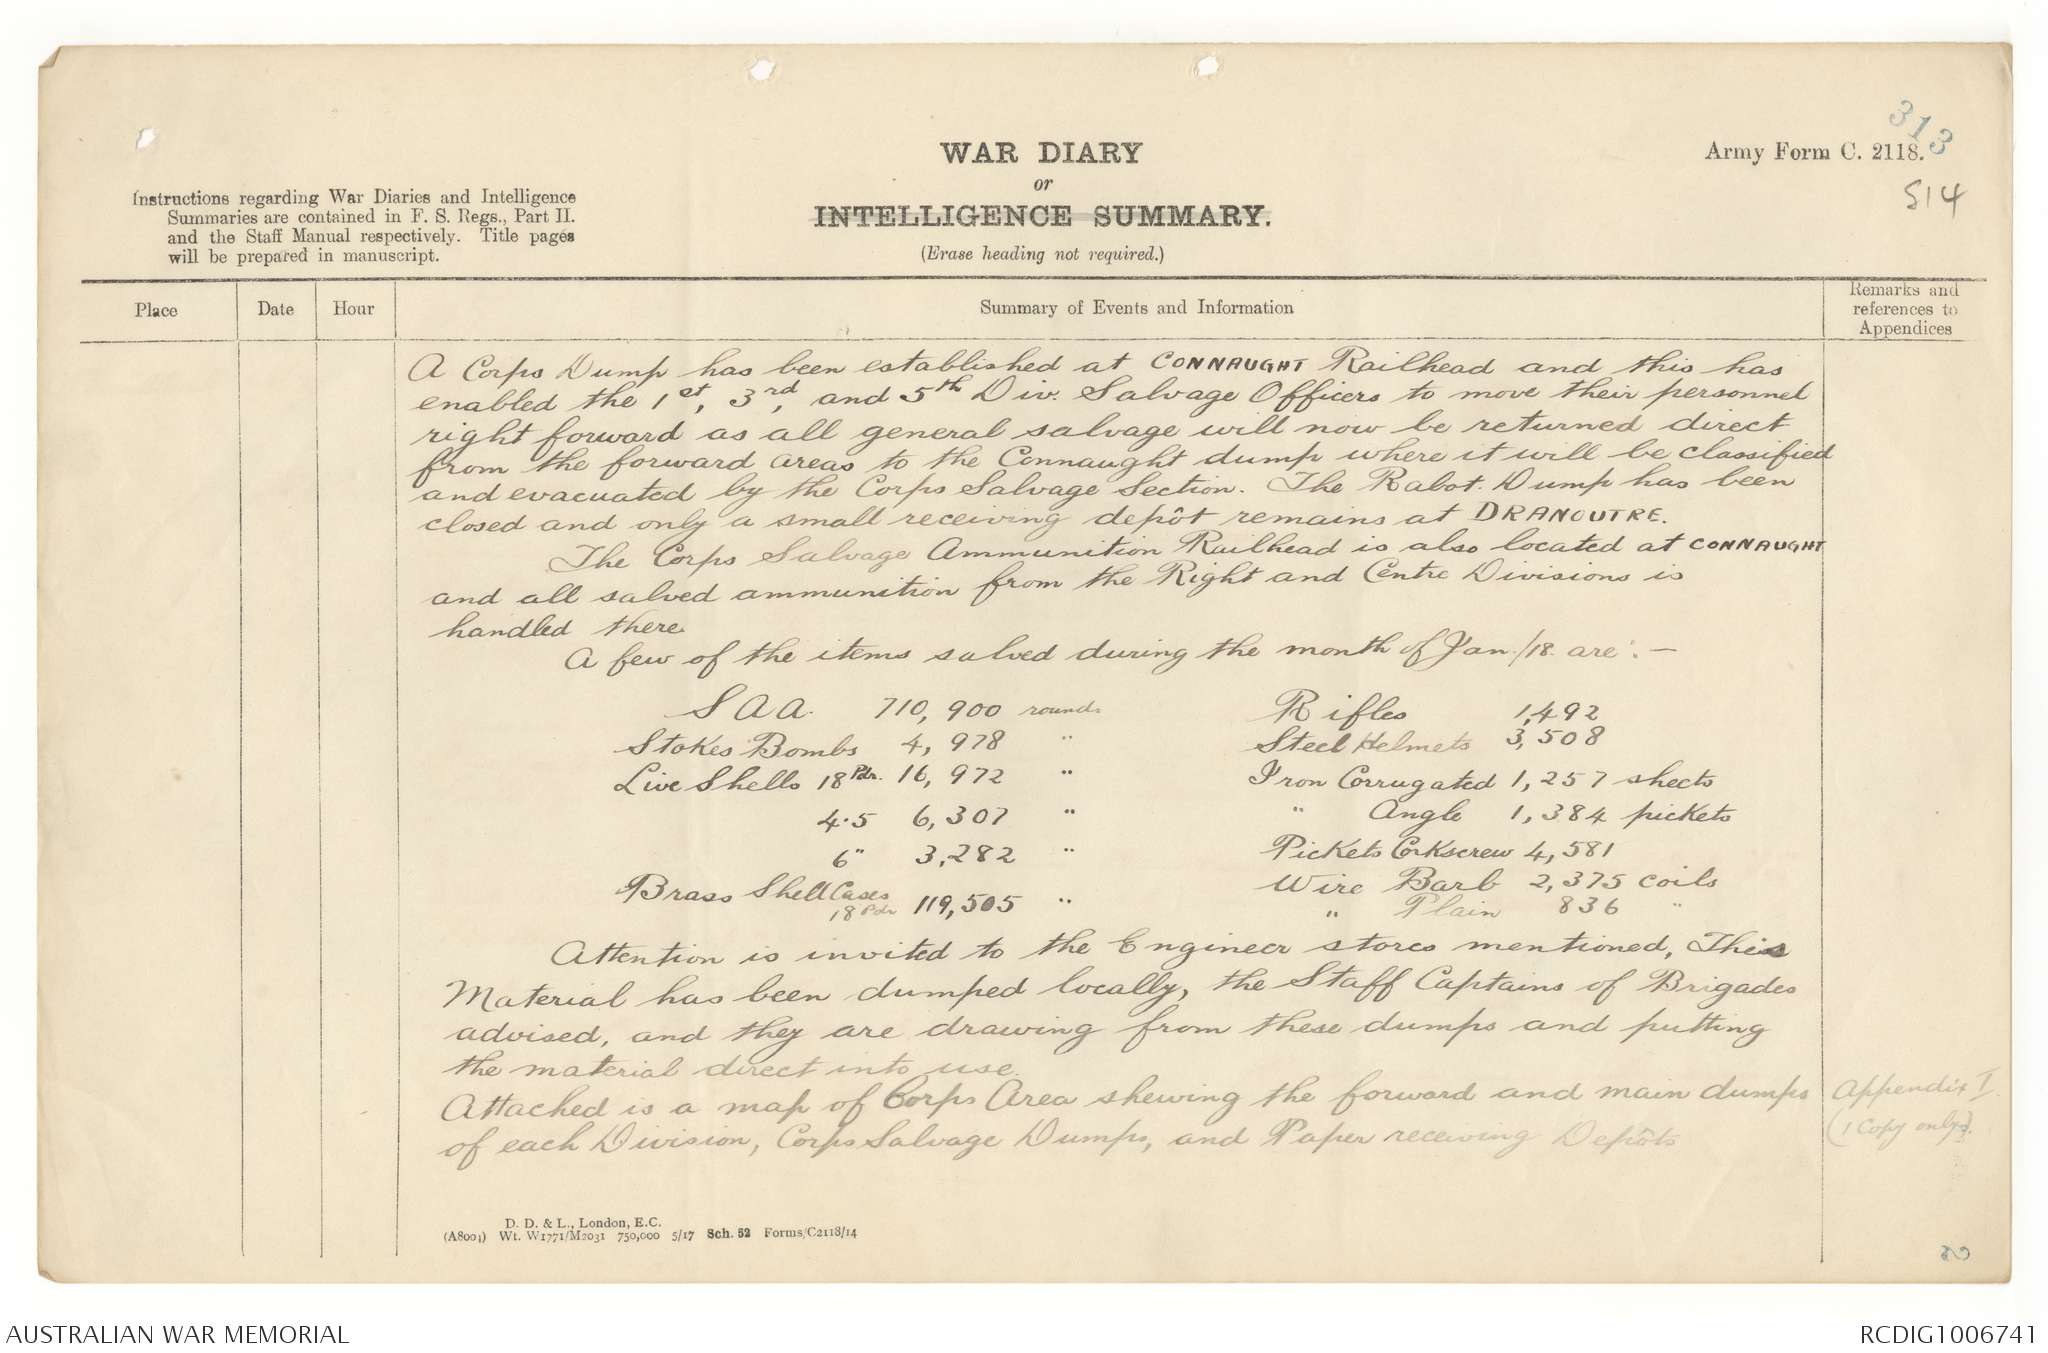 313
WAR DIARY
or
INTELLIGENCE SUMMARY.
(Erase heading not required.)
Army Form C. 2118.
S14
Instructions regarding War Diaries and Intelligence
Summaries are contained in F. S. Regs., Part II.
and the Staff Manual respectively. Title pages
will be prepared in manuscript.
Place Date Hour Summary of Events and Information Remarks and references to Appendices
A Corps Dump has been established at CONNAUGHT Railhead and this has
enabled the 1st, 3rd, and 5th Div. Salvage Officers to move their personnel
right forward as all general salvage will now be returned direct
from the forward areas to the Connaught dump where it will be classified
and evacuated by the Corps Salvage Section. The Rabot. Dump has been
closed and only a small receiving depôt remains at DRANOUTRE.
The Corps Salvage Ammunition Railhead is also located at CONNAUGHT
and all salved ammunition from the Right and Centre Divisions is
handled there.
A few of the items salved during the month of Jan./18. are :-
S A A. 710,900 rounds Rifles 1,492
Stokes Bombs 4,978 " Steel Helmets 3,508
Live Shells 18 Pdr. 16,972 " Iron Corrugated 1,257 sheets
4.5 6,307 " " Angle 1,384 pickets
6" 3,282 " Pickets Corkscrew 4,581
Brass Shell Cases Wire Barb 2,375 coils
18 Pdr 119,505 " " Plain 836 "
Attention is invited to the Engineer stores mentioned, This
Material has been dumped locally, the Staff Captains of Brigades
advised, and they are drawing from these dumps and putting
the material direct into use.
Attached is a map of Corps Area shewing the forward and main dumps Appendix I
of each Division, Corps Salvage Dumps, and Paper receiving Depôts (1 Copy only).
D. D. & L., London, E.C.
(A8001) Wt. W1771/M2031 750,000 5/17 Sch. 52 Forms/C2118/14
AUSTRALIAN WAR MEMORIAL
RCDIG1006741